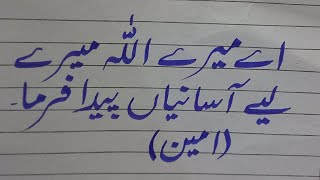 اے میرے اللّٰہ میرے
لیے آسانیاں پیدا فرما۔
(امین)